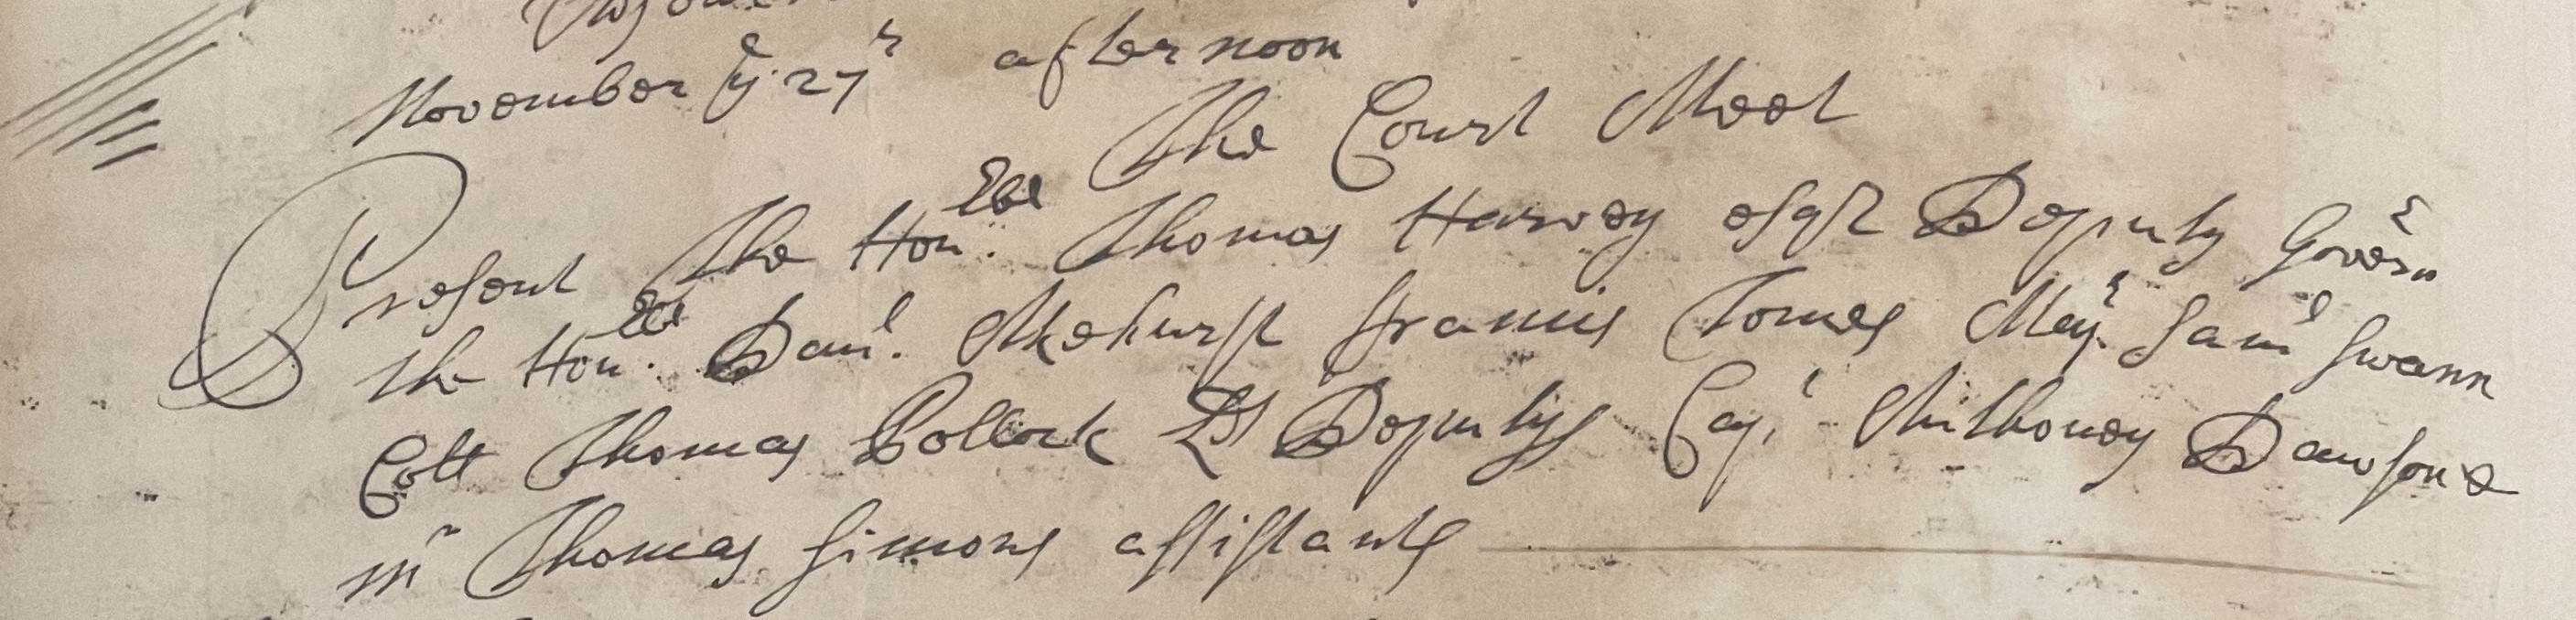 November ye 27th afternoon
The Court Meet
Present The Honble Thomas Harvey esqr Deputy Governr
the Honble Danl Akehurst Francis Tomes Majr Saml Swann
Coll Thomas Pollock Lds Deputys Capt Anthoney Dawson &
mr Thomas Simons assistants